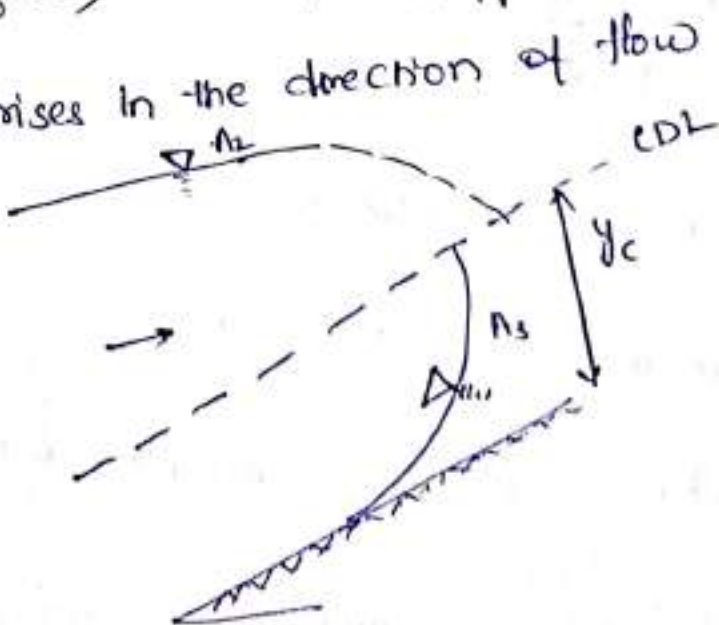 rises in the direction of flow
A2
CDL
yc
A3